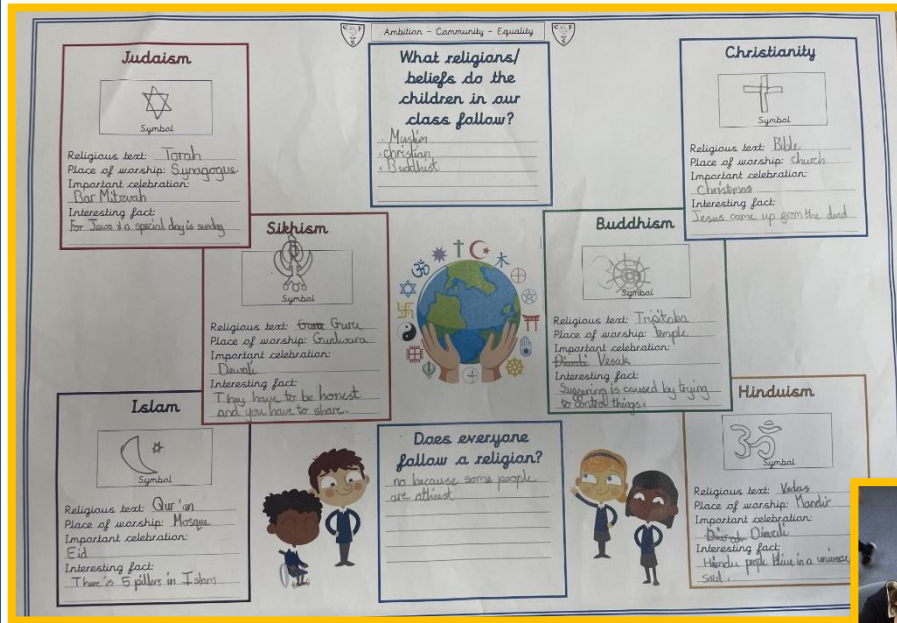 Ambition - Community - Equality
Judaism
Symbol
Religious text: Torah
Place of worship: Synagogue
Important celebration:
Bar Mitzvah
Interesting fact:
For Jaws a special day is sunday
What religions/
beliefs do the
children in our
class follow?
. Muslim
. christian
. Buddhist
Christianity
Symbol
Religious text: Bible
Place of worship: church
Important celebration:
Christmas
Interesting fact:
Jesus came up from the dead
Sikhism
Symbol
Religious text: Guru
Place of worship: Gurdwara
Important celebration:
Dewali
Interesting fact:
They have to be honest
and you have to share.
Buddhism
Symbol
Religious text: Tripitaka
Place of worship: temple
Important celebration:
Diwali Vesak
Interesting fact:
Suffering is caused by trying
to control things.
Islam
Symbol
Religious text: Qur'an
Place of worship: Mosque
Important celebration:
Eid
Interesting fact:
There's 5 pillers in Islam
Does everyone
follow a religion?
no because some people
are athiest
Hinduism
Symbol
Religious text: Vedas
Place of worship: Mandir
Important celebration:
Diwali
Interesting fact:
Hindu people blive in a universe
soul.